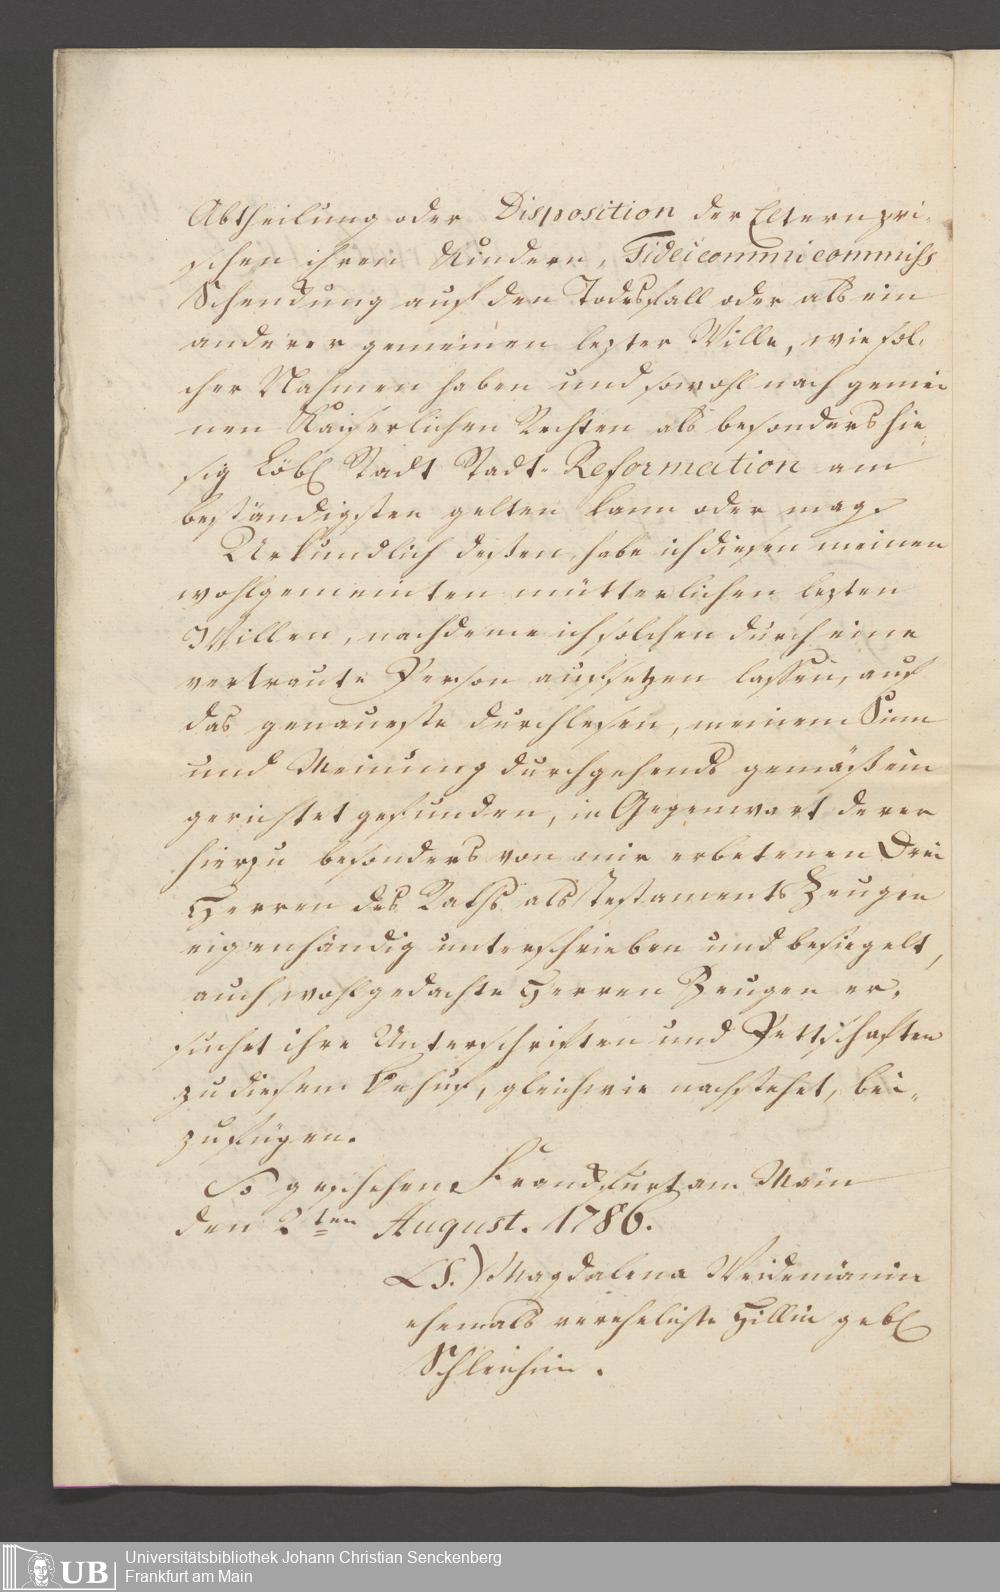 Abtheilung oder Disposition der Eltern zwi-
schen ihren Kindern, Fideicommicommiss
Schendung auf den Todesfall oder als ein
anderer gemeinen lezter Wille, wie sol-
cher Nahmen haben und sowohl nach gemei
nen Kaiserlichen Rechten als besonders hie
sig Löbl Stadt Stadt-Reformation am
beständigsten gelten kann oder mag.
Urkundlich deßen habe ich diesen meinen
wohlgemeinten mütterlichen lezten
Willen, nachdeme ich solchen durch eine
vertraute Person aufsetzen lassen, auf
das genaueste durchlesen, meinem Sinn
und Meinung durchgehends gemäß ein
gerichtet gefunden, in Gegenwart derer
hierzu besonders von mir erbetenen Drei
Herren des Raths als Testaments Zeugen
eigenhändig unterschrieben und besiegelt,
auch wohlgedachte Herren Zeugen er-
suchet ihre Unterschriften und Pettschaften
zu diesem Behuf, gleichwie nachstehet, bei-
zufügen.
So geschehen Frankfurt am Main
den 2ten August. 1786.
(LS.) Magdalena Weidemännin
ehemals verehelichte Hillin gebl
Schleichin.
Universitätsbibliothek Johann Christian Senckenberg
UB Frankfurt am Main